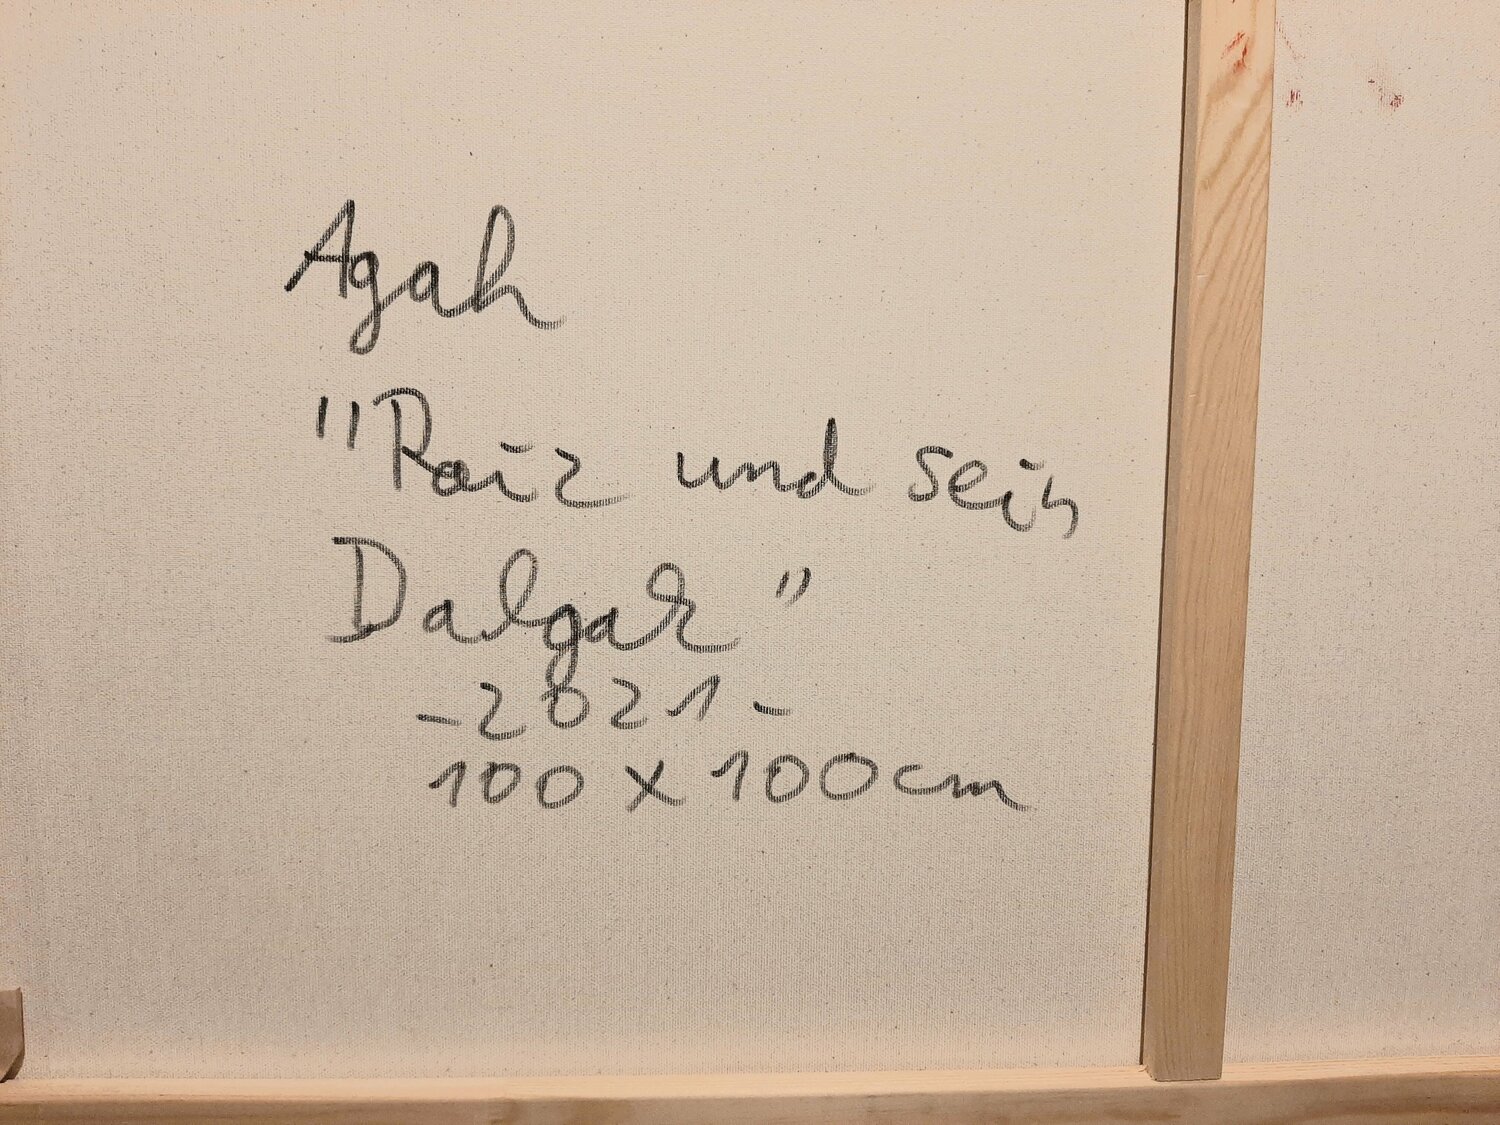 Agah
"Raiz und sein
Dalgak"
-2021-
100 x 100cm